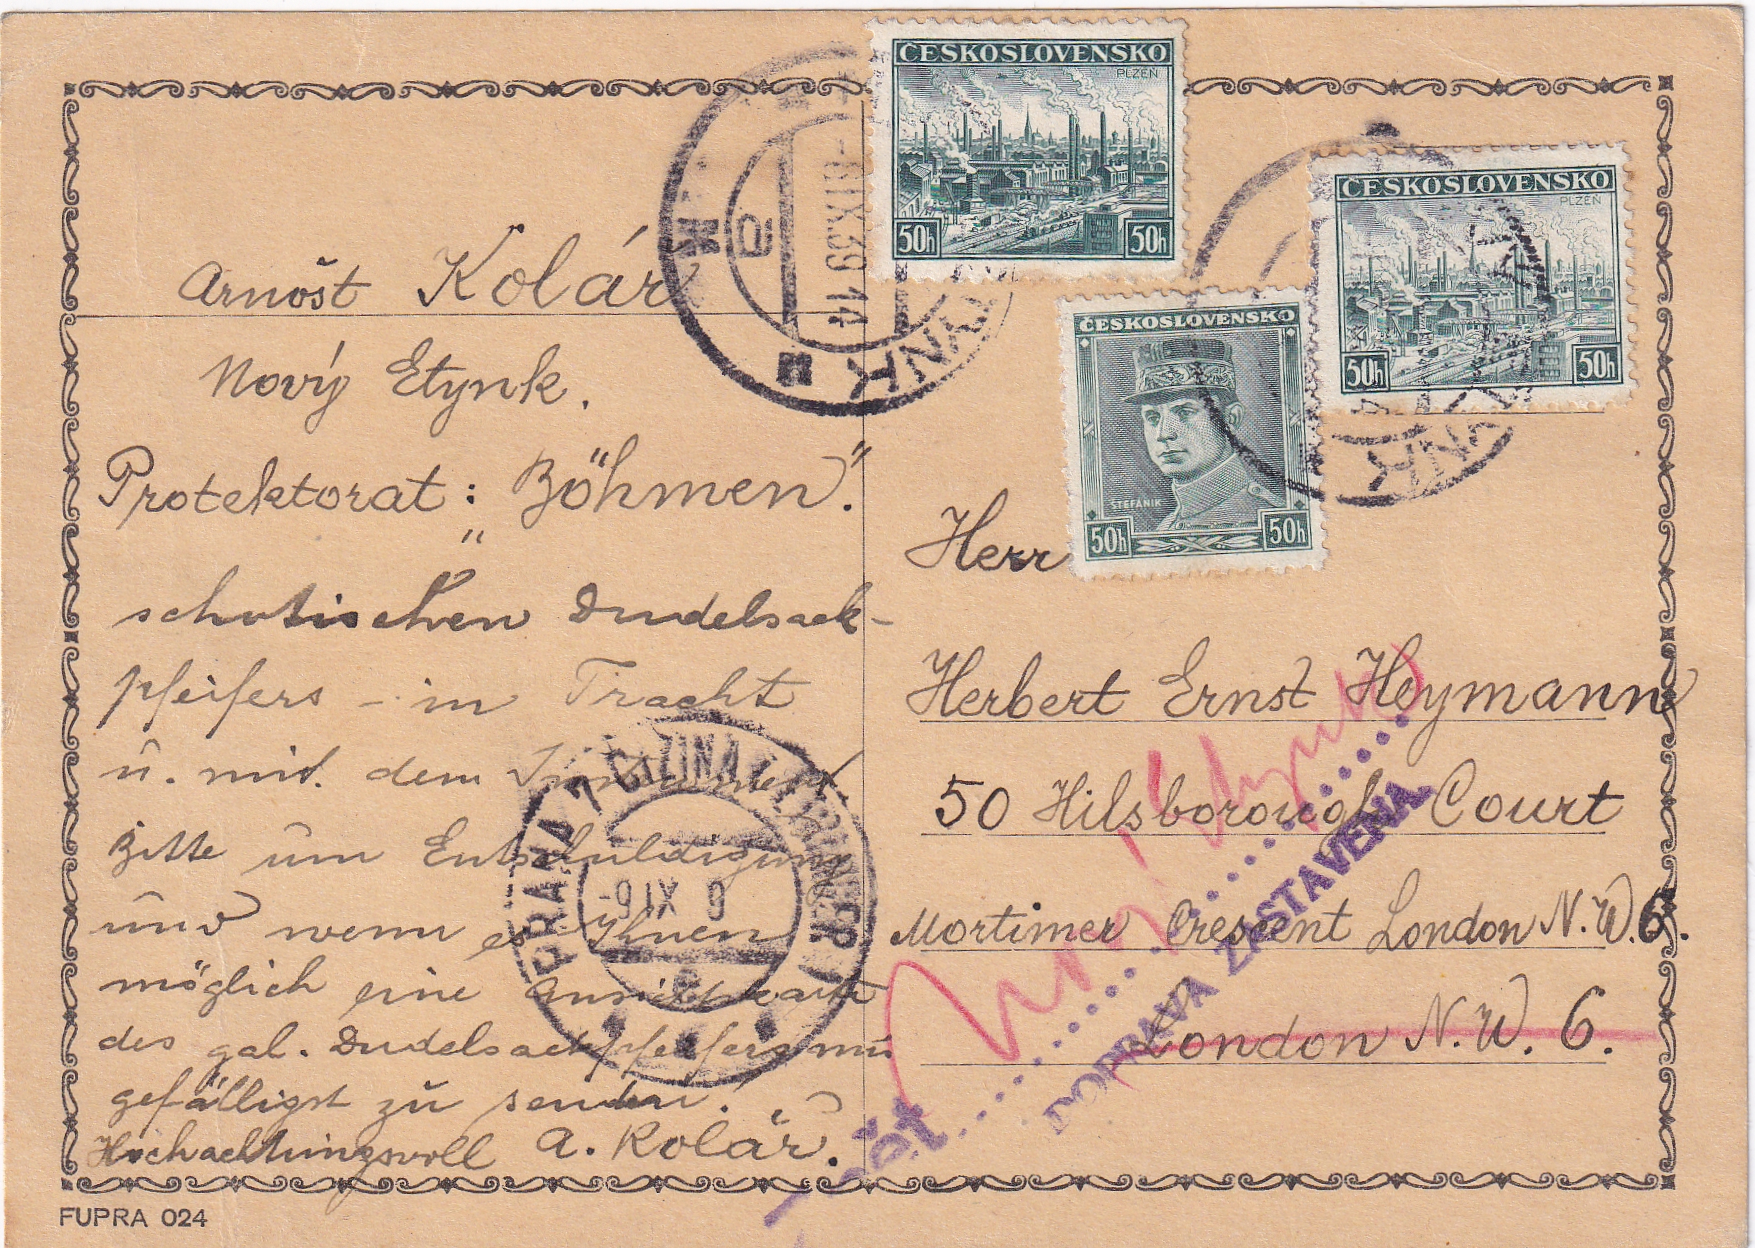 ČESKOSLOVENSKO
PLZEŇ
50h 50h
ČESKOSLOVENSKO
PLZEŇ
50h 50h
ČESKOSLOVENSKO
ŠTEFÁNIK
50h 50h
-8.IX.39 14
TYNK
TYNK
Arnošt Kolár
Nový Etynk.
Protektorat: "Böhmen".
schotischen Dudelsack-
pfeifers - in Tracht
u. mit dem Instrument.
Bitte um Entschuldigung
und wenn es Ihnen
möglich eine Ansichtskarte
des gal. Dudelsackpfeifers mir
gefälligst zu senden!
Hochachtungsvoll A. Kolár.
PRAHA 7 CIZINA
-9.IX 9
Herr
Herbert Ernst Heymann
50 Hilsborough Court
Mortimer Crescent London N.W.6.
London N.W. 6.
Zpět
DOPRAVA ZASTAVENA
FUPRA 024